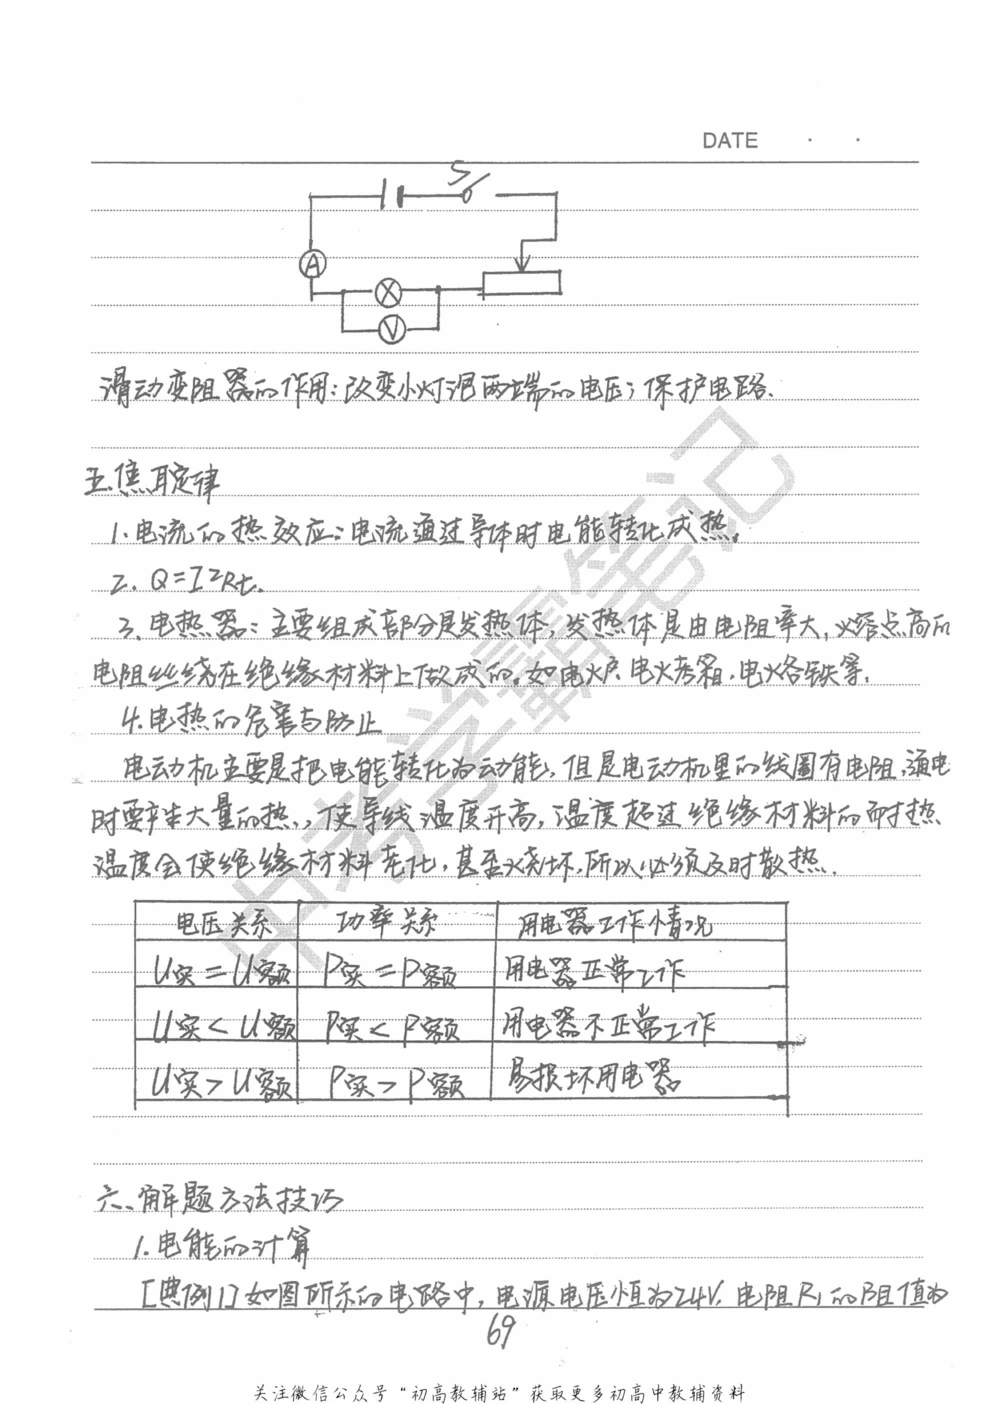 DATE · ·
S
A
V
滑动变阻器的作用:改变小灯泡两端的电压;保护电路.
五.焦耳定律
1.电流的热效应:电流通过导体时电能转化成热。
2. Q=I²Rt.
3.电热器:主要组成部分是发热体,发热体是由电阻率大,熔点高的
电阻丝绕在绝缘材料上做成的。如电炉.电烤箱.电烙铁等.
4.电热的危害与防止
电动机主要是把电能转化为动能,但是电动机里的线圈有电阻,通电
时要产生大量的热,,使导线温度升高,温度超过绝缘材料的耐热
温度会使绝缘材料老化,甚至烧坏,所以必须及时散热.
电压关系 功率关系 用电器工作情况
U实=U额 P实=P额 用电器正常工作
U实<U额 P实<P额 用电器不正常工作
U实>U额 P实>P额 易损坏用电器
六.解题方法技巧
1.电能的计算
[典例1]如图所示的电路中,电源电压恒为24V.电阻R₁的阻值为
69
关注微信公众号“初高教辅站”获取更多初高中教辅资料
中考学霸笔记